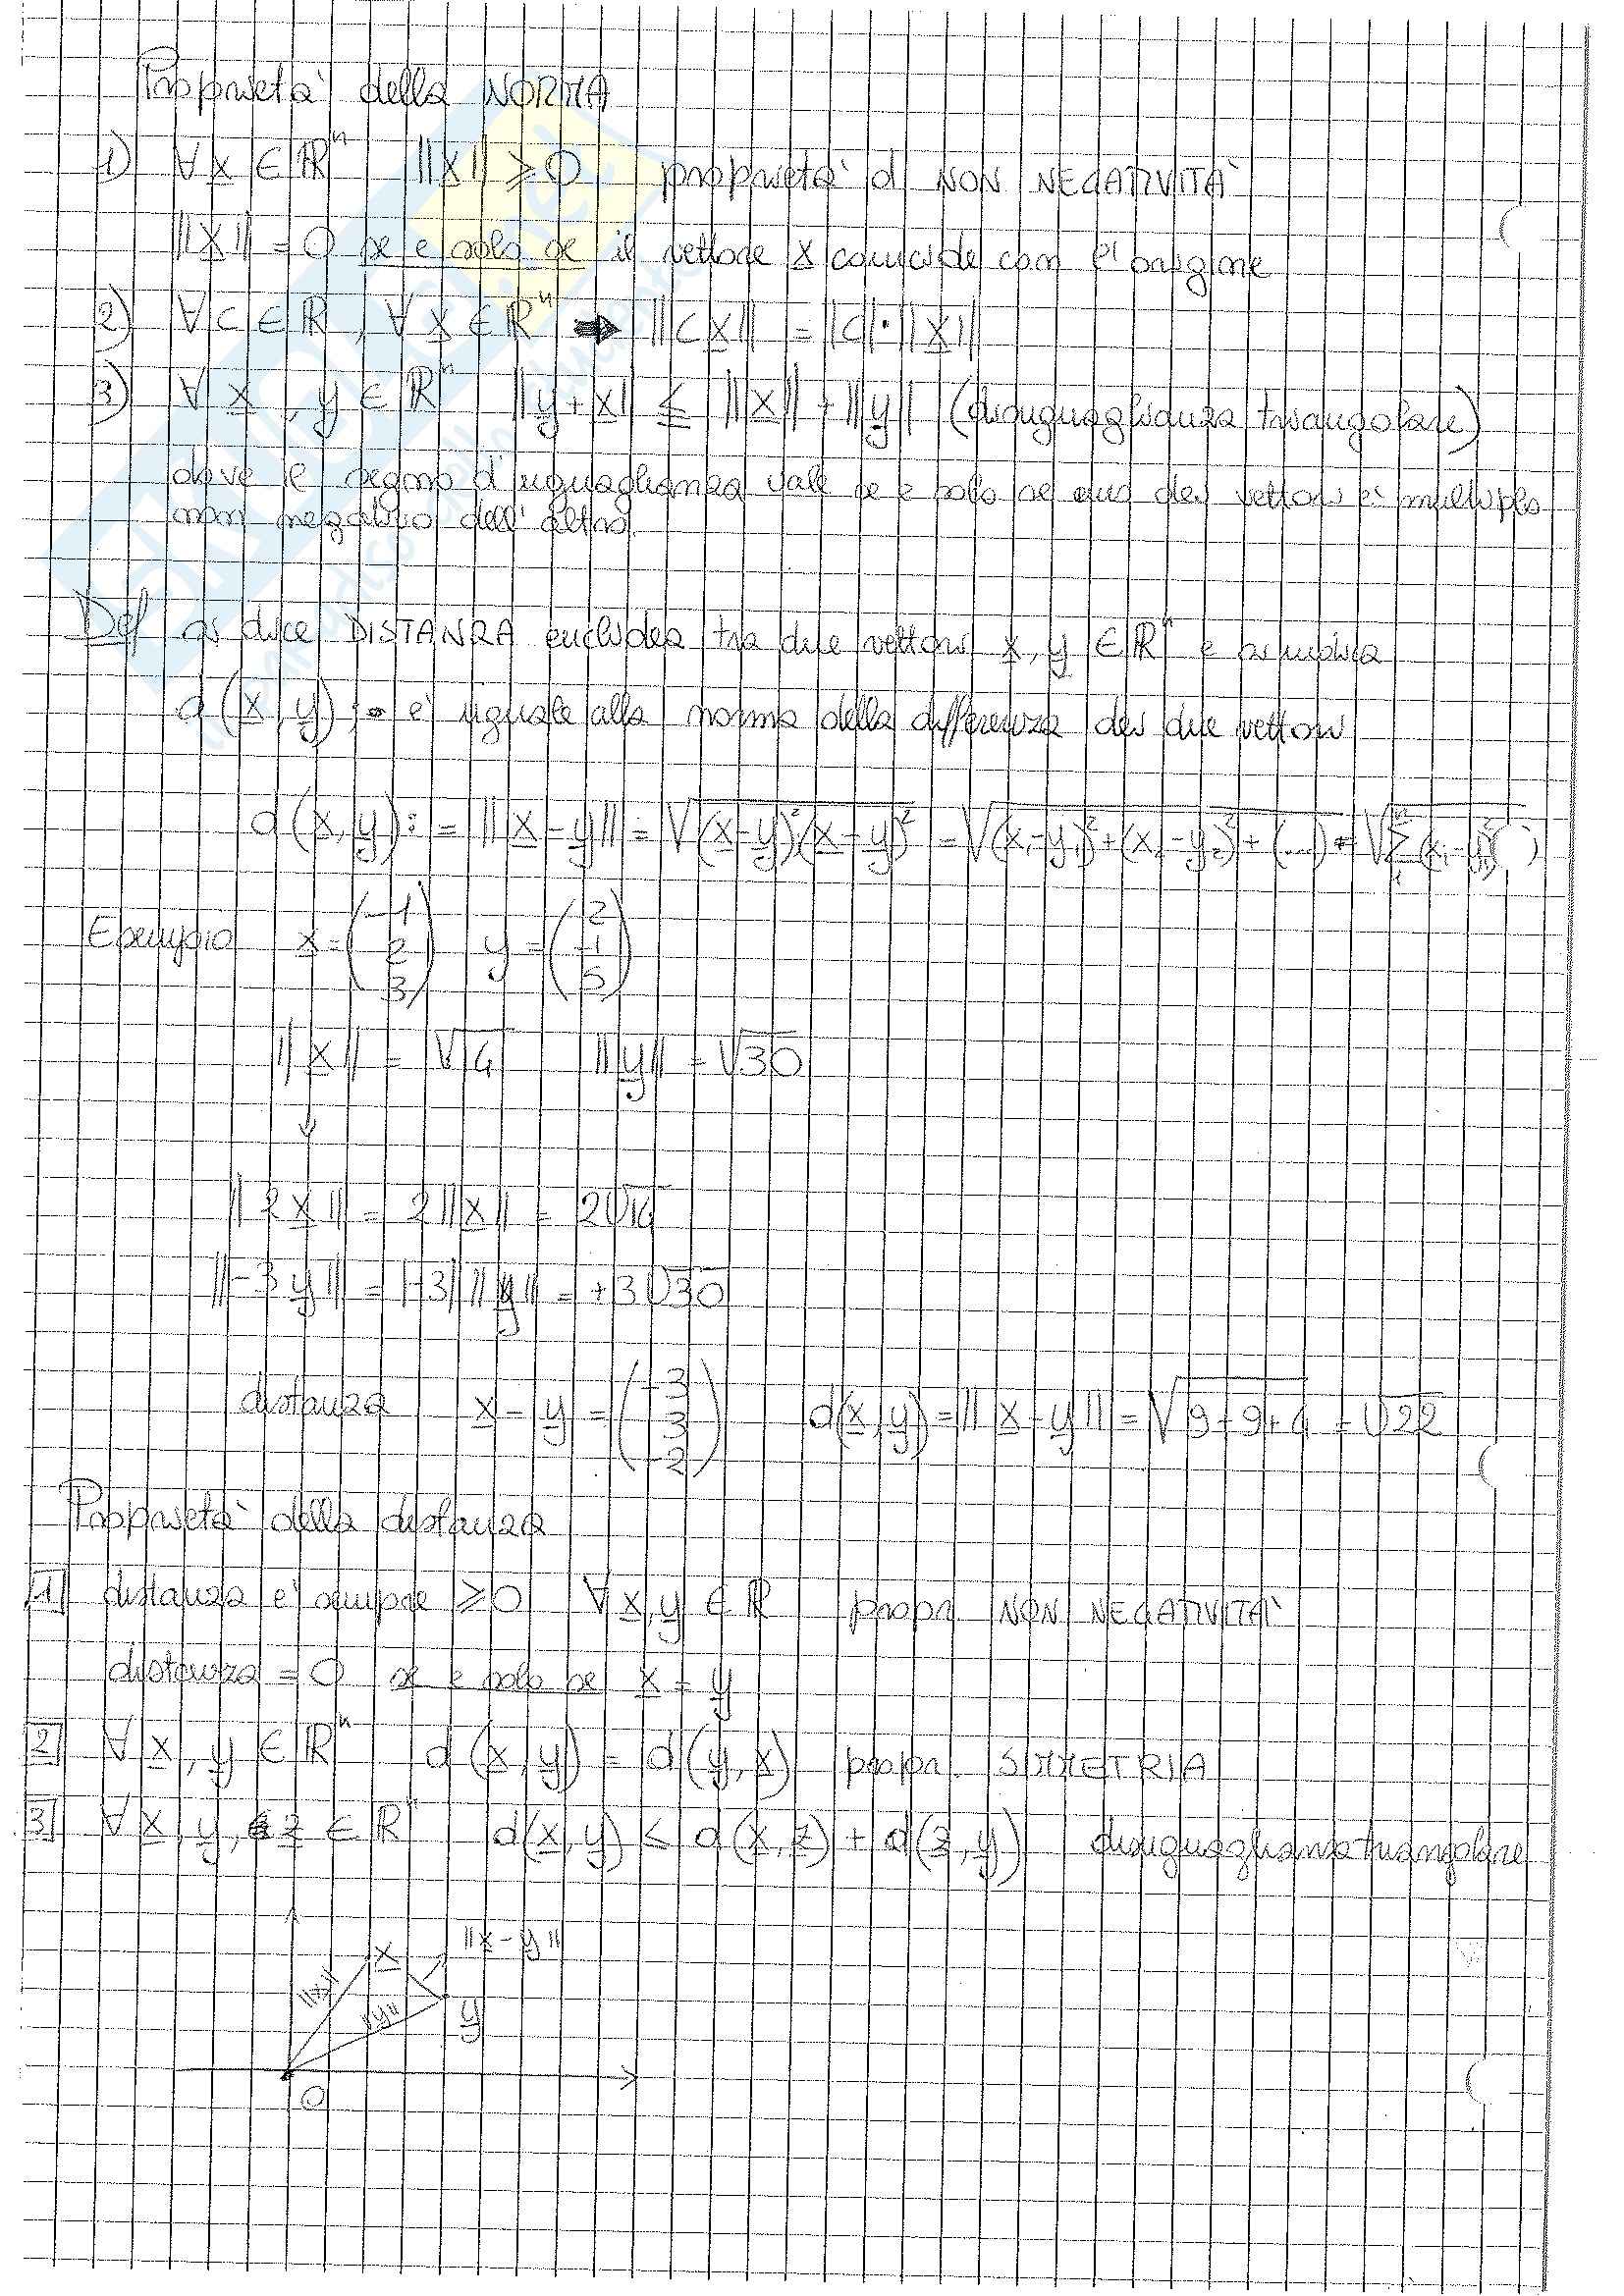 Proprietà della NORMA
1) ∀ x ∈ ℝⁿ ||x|| ≥ 0 proprietà di NON NEGATIVITÀ
||x|| = 0 se e solo se il vettore x coincide con l'origine
2) ∀ c ∈ ℝ, ∀ x ∈ ℝⁿ ➡ ||cx|| = |c|·||x||
3) ∀ x, y ∈ ℝⁿ ||y+x|| ≤ ||x|| + ||y|| (disuguaglianza triangolare)
dove il segno d'uguaglianza vale se e solo se uno dei vettori è multiplo
non negativo dell'altro.
Def si dice DISTANZA euclidea tra due vettori x, y ∈ ℝⁿ e si indica
d(x, y) è uguale alla norma della differenza dei due vettori
d(x,y) := ||x-y|| = √(x-y)²(x-y)² = √(x₁-y₁)²+(x₂-y₂)²+(....) = √Σ(xᵢ-yᵢ)²
Esempio x = (-1 2 3) y = (2 -1 5)
||x|| = √14 ||y|| = √30
↓
||2x|| = 2||x|| = 2√14
||-3y|| = |-3| ||y|| = +3√30
distanza x - y = (-3 3 -2) d(x,y) = ||x-y|| = √9+9+4 = √22
Proprietà della distanza
1 distanza è sempre ≥0 ∀ x,y ∈ ℝ propr. NON NEGATIVITÀ
distanza = 0 se e solo se x = y
2 ∀ x, y ∈ ℝⁿ d(x,y) = d(y,x) propr. SIMMETRIA
3 ∀ x, y, z ∈ ℝⁿ d(x,y) ≤ d(x,z) + d(z,y) disuguaglianza triangolare
||x-y||
x
||x||
||y||
y
O